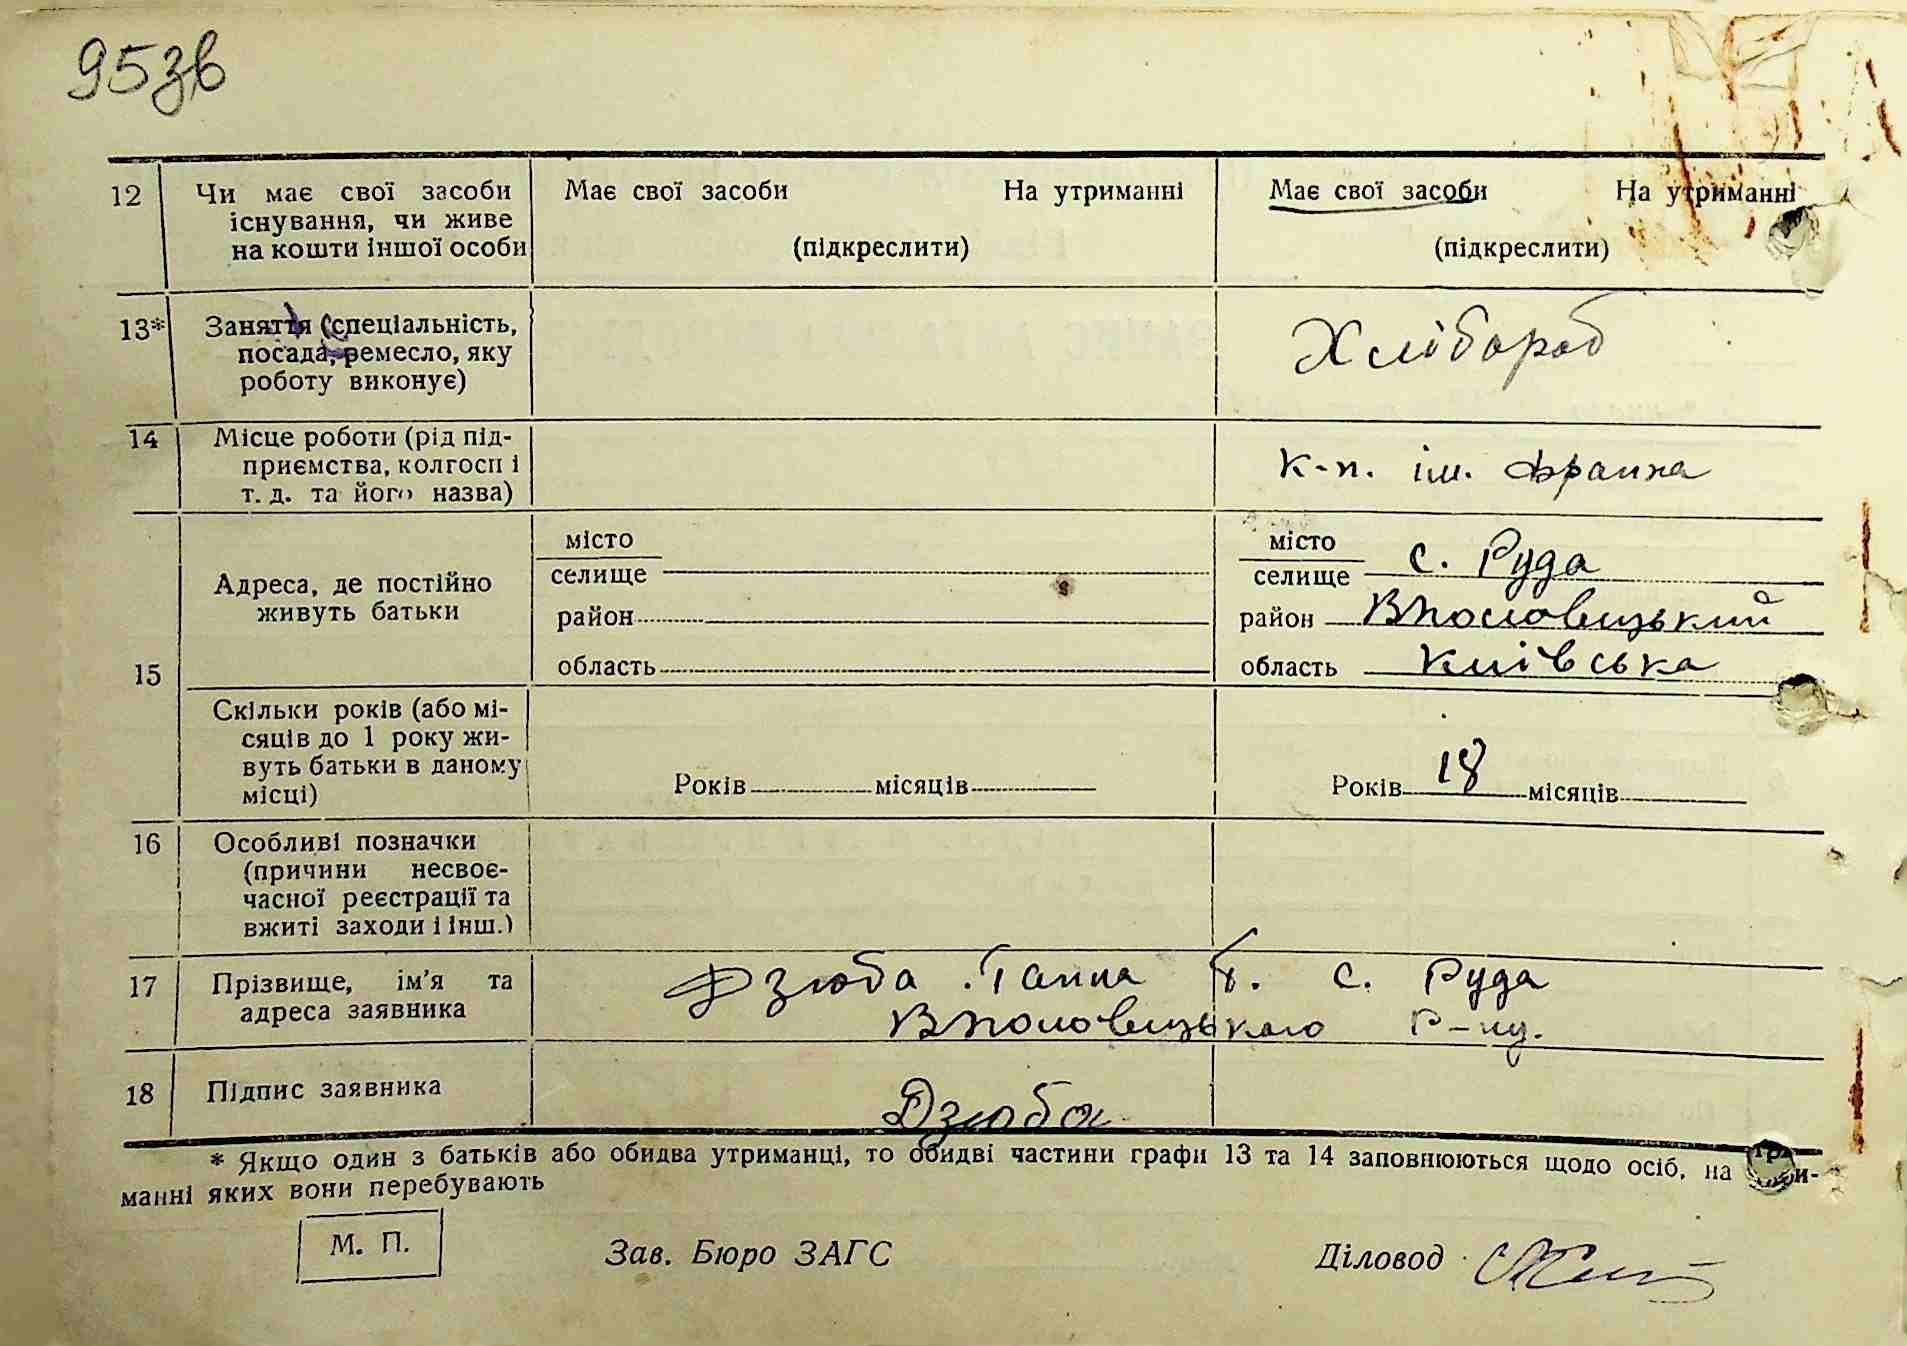 95зв
12 Чи має свої засоби Має свої засоби На утриманні Має свої засоби На утриманні
існування, чи живе
на кошти іншої особи (підкреслити) (підкреслити)
13* Заняття (спеціальність,
посада, ремесло, яку Хлібороб
роботу виконує)
14 Місце роботи (рід під-
приємства, колгосп і к-п. ім. Франка
т. д. та його назва)
місто місто
селище селище с. Руда
Адреса, де постійно
живуть батьки район район Вполовецький
область область Київська
15
Скільки років (або мі-
сяців до 1 року жи-
вуть батьки в даному
місці) Років місяців Років 18 місяців
16 Особливі позначки
(причини несвоє-
часної реєстрації та
вжиті заходи і інш.)
17 Прізвище, ім'я та Дзюба Ганна Т. с. Руда
адреса заявника Вполовецького р-ну.
18 Підпис заявника Дзюба
* Якщо один з батьків або обидва утриманці, то обидві частини графи 13 та 14 заповнюються щодо осіб, на утри-
манні яких вони перебувають
М. П. Зав. Бюро ЗАГС Діловод